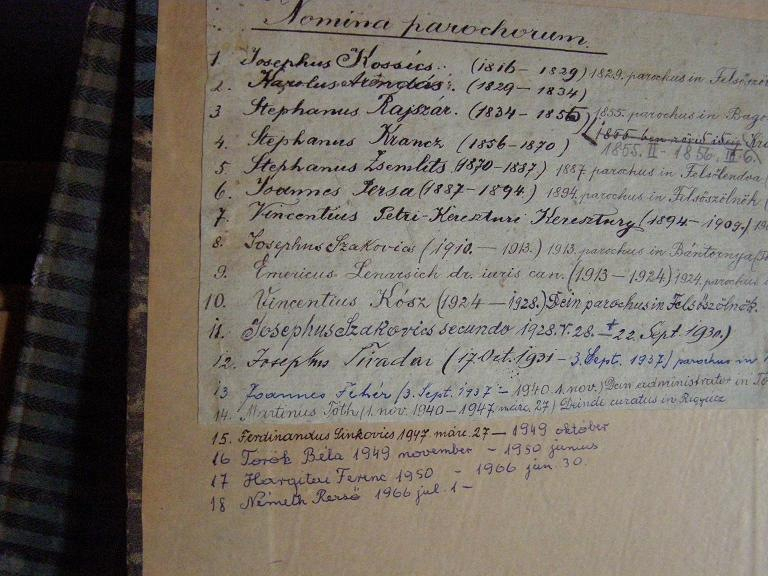 Nomina parochorum.
1. Josephus Kossics. (1816 – 1829) 1829. parochus in Felsőször
2. Karolus Arondás. (1829 – 1834)
3 Stephanus Rajszár. (1834 – 1855) 1855. parochus in Bago
1855. II – 1856. III. 6.
4. Stephanus Krancz (1856 – 1870)
5. Stephanus Zsemlits (1870 – 1887) 1887 parochus in Felsőlendva (
6. Joannes Persa (1887 – 1894.) 1894. parochus in Felsőszölnök (
7. Vincentius Petri-Kereszturi Keresztury (1894 – 1909.) 19
8. Josephus Szakovics (1910. – 1913.) 1913. parochus in Bántornya
9. Emericus Lenarsich dr. iuris can. (1913 – 1924) 1924. parochus
10. Vincentius Kósz (1924 – 1928.) Dein parochus in Felsőszölnök.
11. Josephus Szakovics secundo 1928. V. 28. – † 22. Sept. 1930.)
12. Josephus Tivadar (17. Oct. 1931 – 3. Sept. 1937) parochus in
13 Joannes Fehér (3. Sept. 1937 – 1940. 1. nov.) Dein administrator in
14. Martinus Tóth (1. nov. 1940 – 1947. márc. 27) Deinde curatus in Rigyác
15. Ferdinandus Sinkovics 1947. márc. 27 – 1949 október
16 Török Béla 1949 november – 1950 június
17 Hargitai Ferenc 1950 – 1966 jún. 30.
18 Németh Rezső 1966 júl. 1 –